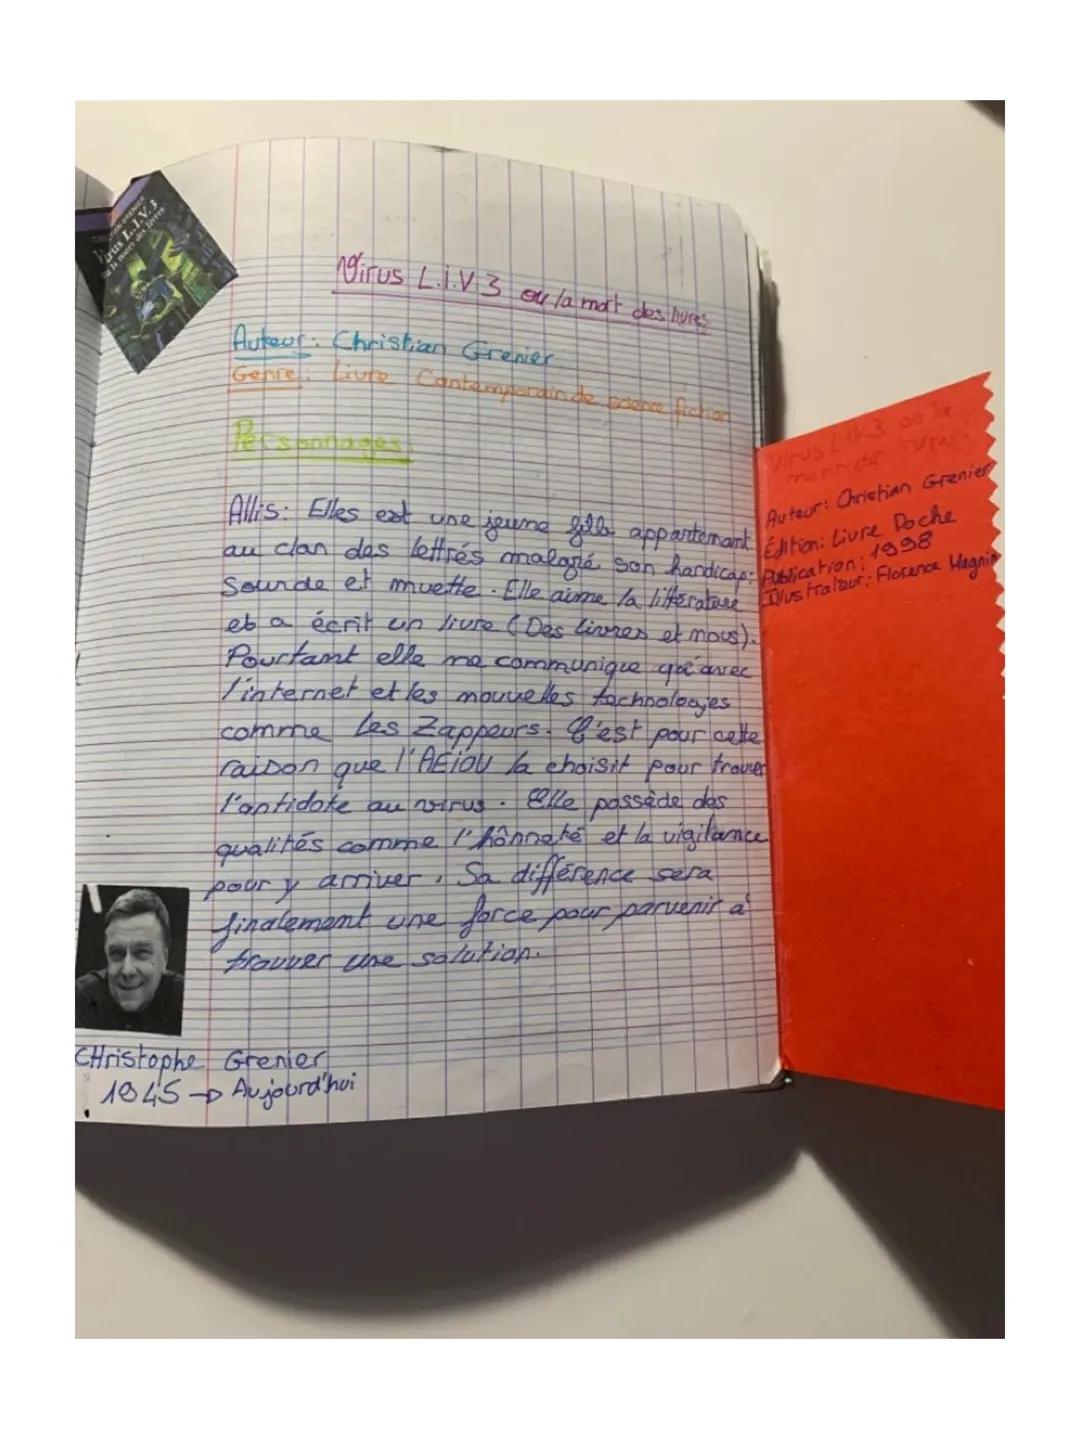 CHRISTIAN GRENIER
Virus L.I.V.3
ou la mort des livres
Virus L.i.V 3 ou la mort des livres
Auteur: Christian Grenier
Genre: Livre Contemporain de science fiction
Personnages:
Allis: Elles est une jeune fille appartenant
au clan des lettrés malgré son handicap:
Sourde et muette. Elle aime la littérature
et a écrit un livre (Des livres et nous).
Pourtant elle ne communique qu'avec
l'internet et les nouvelles technologies
comme Les Zappeurs. C'est pour cette
raison que l'AEiOU la choisit pour trouver
l'antidote au virus. Elle possède des
qualités comme l'hônneté et la vigilance
pour y arriver. Sa différence sera
finalement une force pour parvenir à
trouver une solution.
CHristophe Grenier
1945 → Aujourd'hui
Virus LIV3 ou la
mort des
Auteur: Christian Grenier
Édition: Livre Poche
Publication: 1998
Illustrateur: Florence Magnin